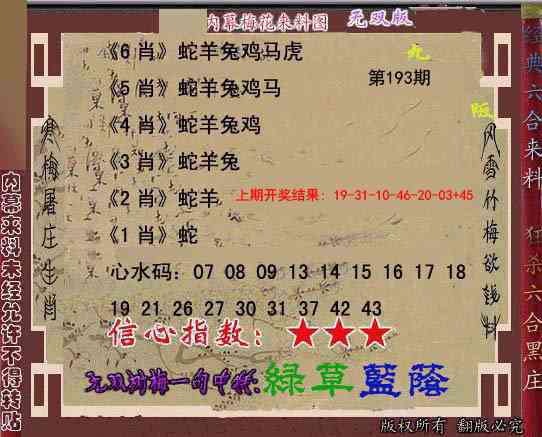 内幕梅花来料图 无双版
《6 肖》蛇羊兔鸡马虎
《5 肖》蛇羊兔鸡马
《4 肖》蛇羊兔鸡
《3 肖》蛇羊兔
《2 肖》蛇羊
《1 肖》蛇
第193期
上期开奖结果：19-31-10-46-20-03+45
心水码：07 08 09 13 14 15 16 17 18
19 21 26 27 30 31 37 42 43
信心指数：★★★
绿草藍蔭
寒梅屠庄生肖
风雪竹梅欲钱料
内幕来料未经允许不得转贴
经典六合来料
狂杀六合黑庄
版权所有 翻版必究